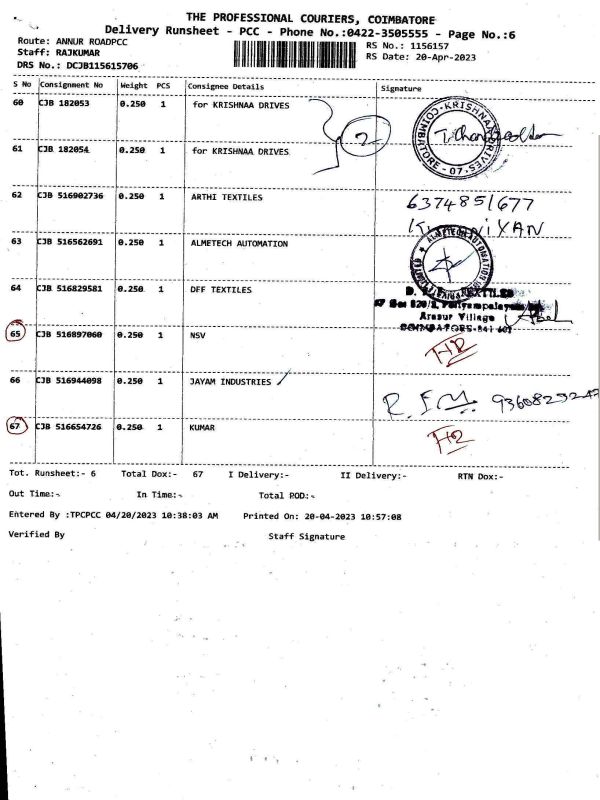 THE PROFESSIONAL COURIERS, COIMBATORE
Delivery Runsheet - PCC - Phone No.:0422-3505555 - Page No.:6
Route: ANNUR ROADPCC
RS No.: 1156157
Staff: RAJKUMAR
RS Date: 20-Apr-2023
DRS No.: DCJB115615706
S No Consignment No Weight PCS Consignee Details Signature
60 CJB 182053 0.250 1 for KRISHNAA DRIVES
2
KRISHNAA DRIVES COIMBATORE - 07.
61 CJB 182054 0.250 1 for KRISHNAA DRIVES
62 CJB 516902736 0.250 1 ARTHI TEXTILES 6374851677
63 CJB 516562691 0.250 1 ALMETECH AUTOMATION
ALMETECH AUTOMATION PRIVATE LIMITED
64 CJB 516829581 0.250 1 DFF TEXTILES
TEXTILES
Arasur Village
COIMBATORE-641 407
65 CJB 516897060 0.250 1 NSV
66 CJB 516944098 0.250 1 JAYAM INDUSTRIES
67 CJB 516654726 0.250 1 KUMAR
Tot. Runsheet:- 6 Total Dox:- 67 I Delivery:- II Delivery:- RTN Dox:-
Out Time:- In Time:- Total POD:-
Entered By :TPCPCC 04/20/2023 10:38:03 AM Printed On: 20-04-2023 10:57:08
Verified By Staff Signature